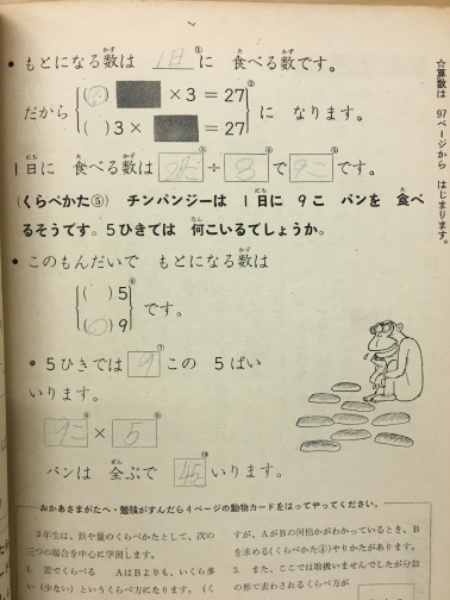 もとになる数は 1日 ①に 食べる数です。
だから
( ) ■ ×3＝27
( )3× ■ ＝27
②に なります。
1日に 食べる数は 27こ ③ ÷ 3 ④ で 9こ ⑤ です。
(くらべかた⑤) チンパンジーは 1日に 9こ パンを 食べ
るそうです。5ひきでは 何こいるでしょうか。
このもんだいで もとになる数は
( )5
(○)9
⑥です。
5ひきでは 9 ⑦ この 5ばい
いります。
9こ × 5
パンは 全ぶで 45 いります。
☆算数は 97ページから はじまります。
おかあさまがたへ・勉強がすんだら4ページの動物カードをはってやってください。
3年生は、数や量のくらべかたとして、次の
三つの場合を中心に学習します。
1. 差でくらべる AはBよりも、いくら多
い(少ない)というくらべ方になります。(く
すが、AがBの何倍かがわかっているとき、B
を求める(くらべかた④)やりかたがあります。
3. また、ここでは取扱いませんでしたが分数
の形で表わされるくらべ方が